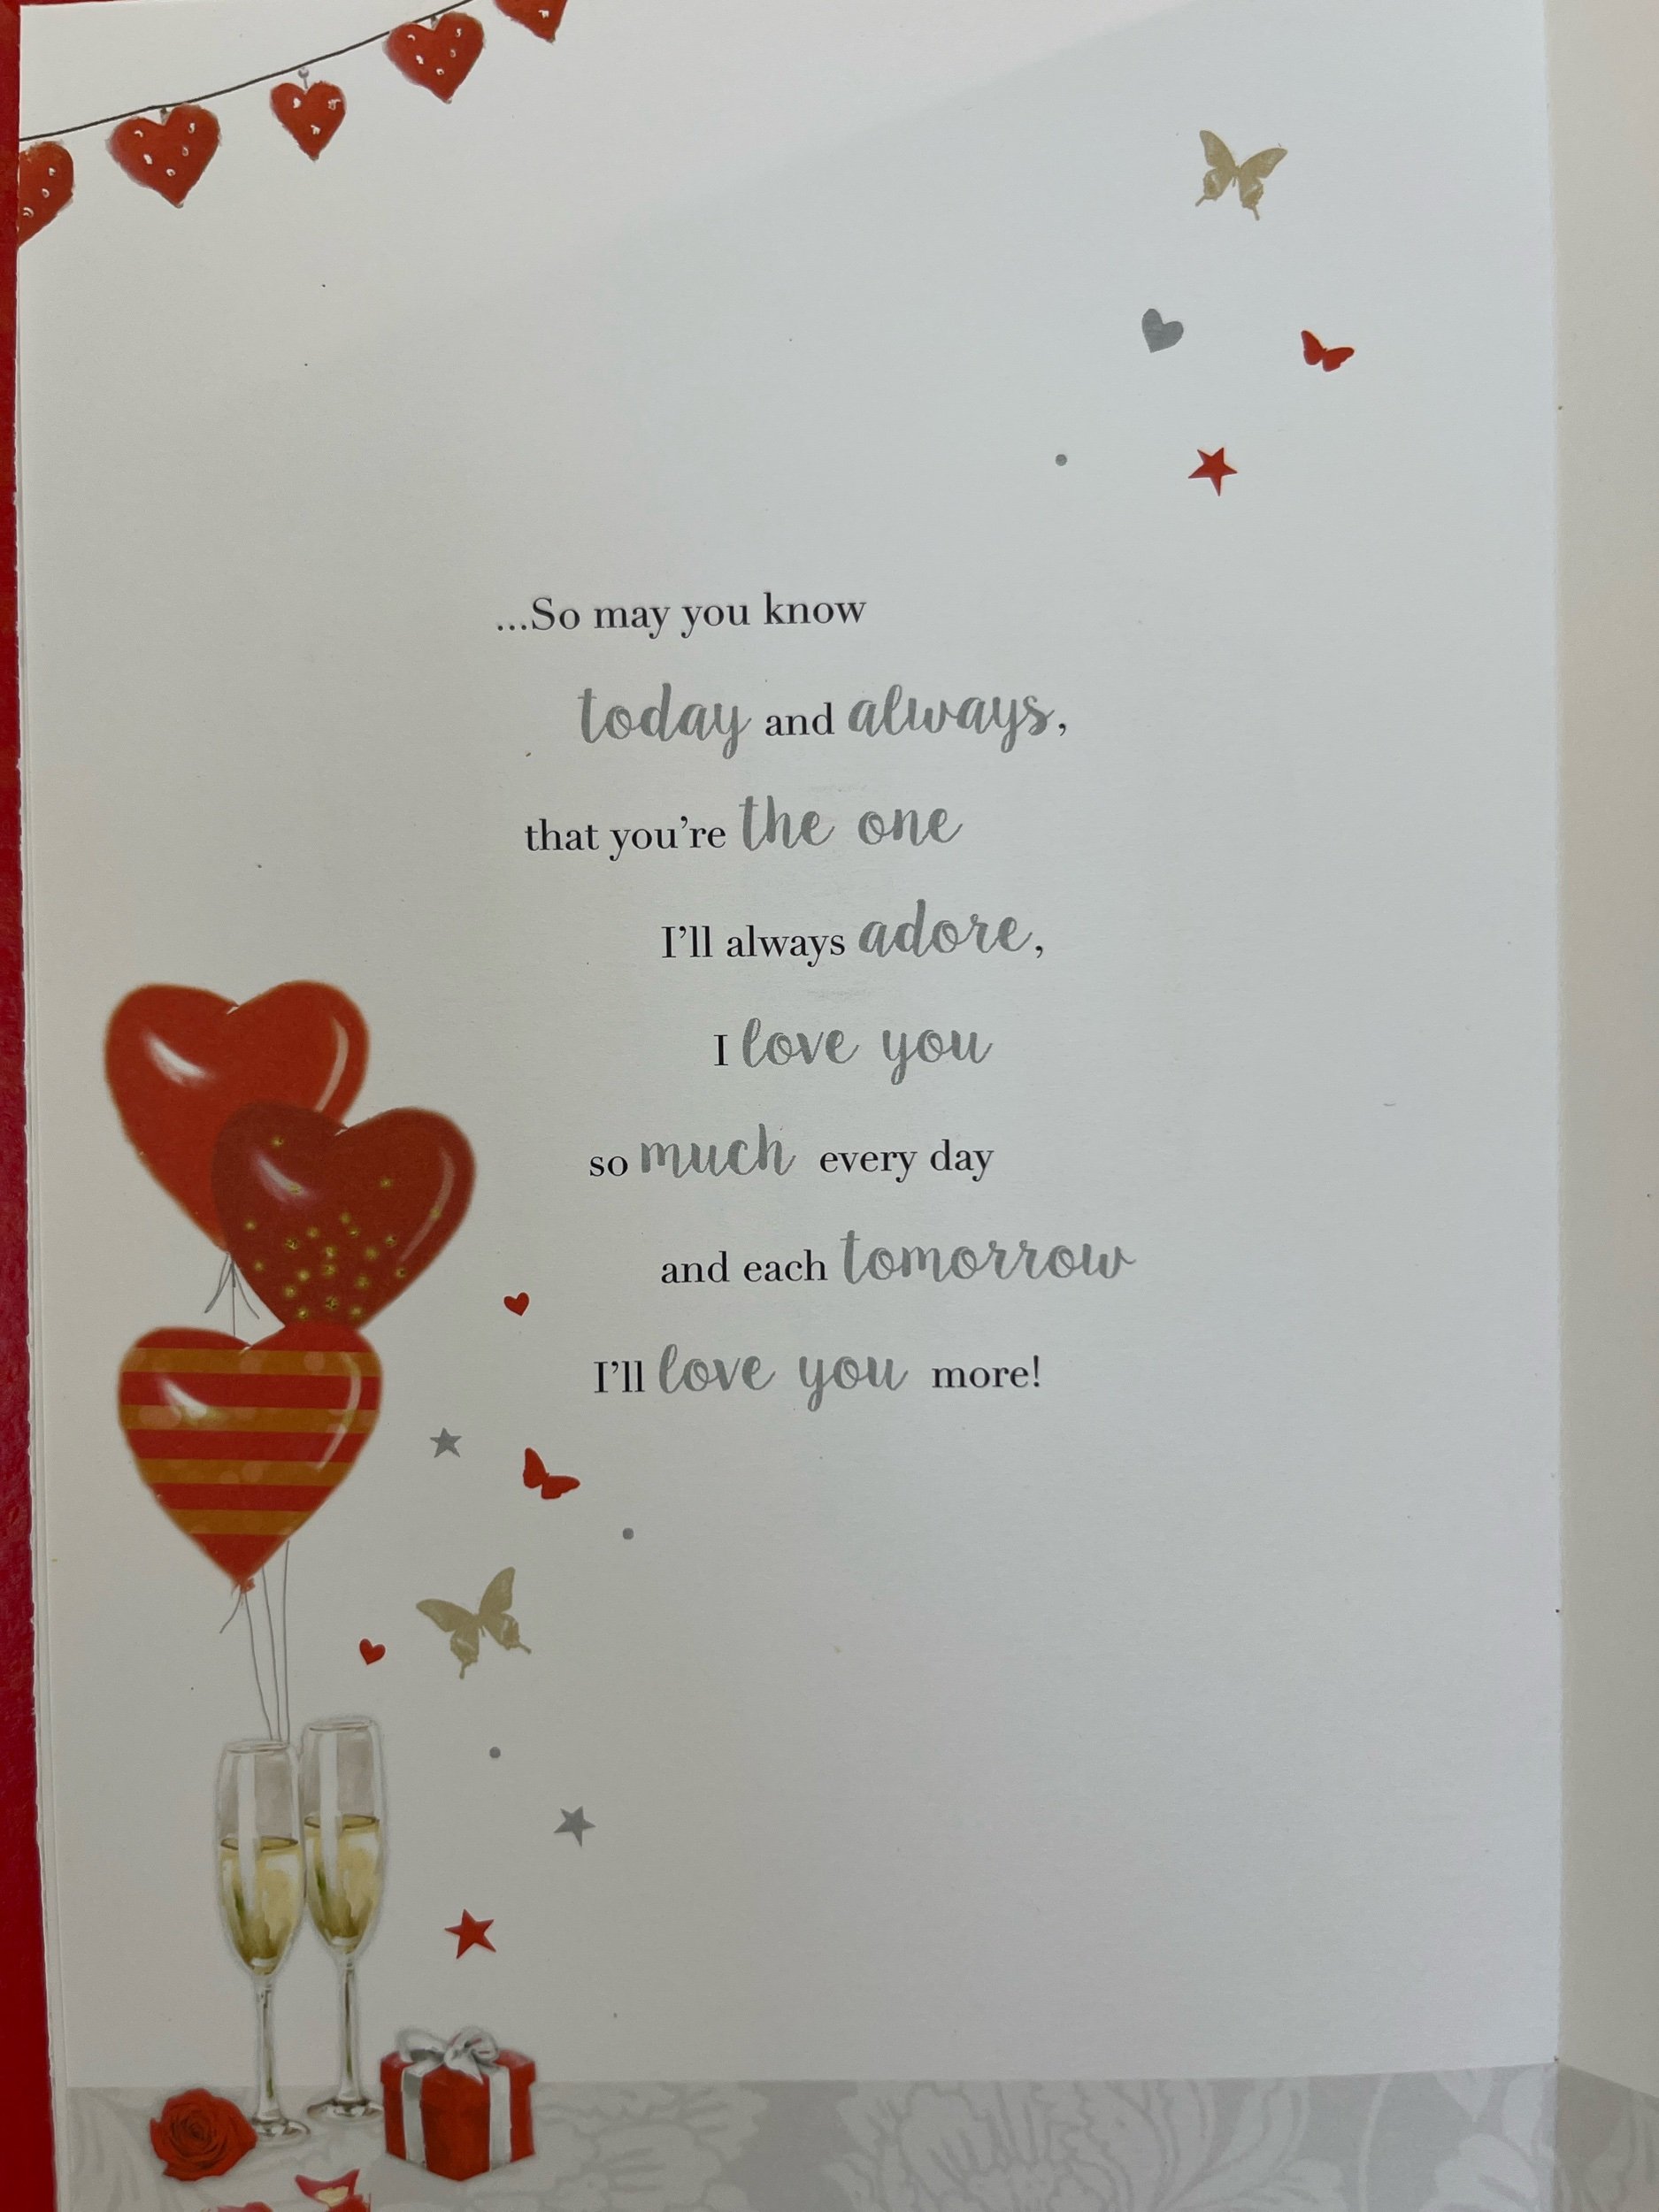 ...So may you know
today and always,
that you're the one
I'll always adore,
I love you
so much every day
and each tomorrow
I'll love you more!